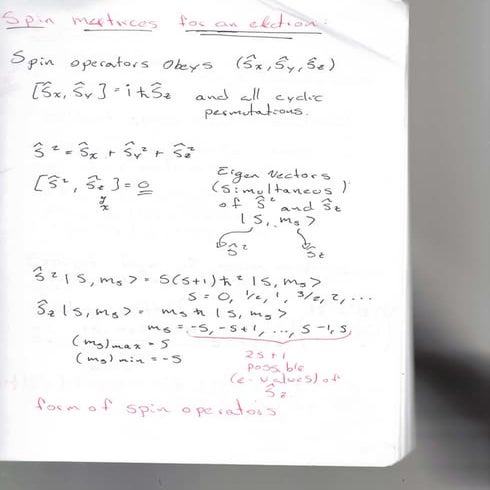 Spin matrices for an election:
Spin operators obeys (Ŝx, Ŝy, Ŝz)
[Ŝx, Ŝy] = iħŜz and all cyclic
permutations.
Ŝ² = Ŝx + Ŝy² + Ŝz²
[Ŝ², Ŝz] = 0
y
x
Eigen vectors
(simultaneous)
of Ŝ² and Ŝz
|S, ms>
Ŝ² Ŝz
Ŝ²|S, ms> = S(S+1)ħ²|S, ms>
S = 0, 1/2, 1, 3/2, 2, ...
Ŝz|S, ms> = msħ|S, ms>
ms = -S, -S+1, ..., S-1, S
(ms)max = S
(ms)min = -S
2S+1
possible
(e-values) of
Ŝz
form of spin operators